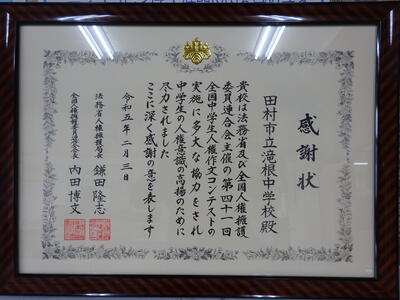 感謝状
田村市立滝根中学校殿
貴校は法務省及び全国人権擁護
委員連合会主催の第四十一回
全国中学生人権作文コンテストの
実施に多大な協力をされ
中学生の人権意識の高揚のために
尽力されました
ここに深く感謝の意を表します
令和五年二月三日
法務省人権擁護局長 鎌田隆志
全国人権擁護委員連合会長 内田博文